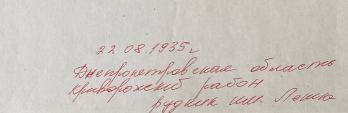 22.08.1935г
Днепропетровская область
Криворожский район
рудник им. Ленина